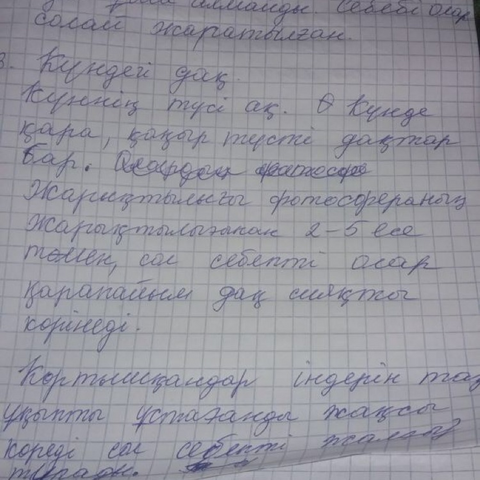 алмайды себебі олар
солай жаратылған.
3. Күндегі дақ.
Күннің түсі ақ. Күнде
қара, қоңыр түсті дақтар
бар. Олардың фотосфе
Жарықтылығы фотосфераның
жарықтылығынан 2-5 есе
төмен, сол себепті олар
қарапайым дақ сияқты
көрінеді.
Көртышқандар індерін таз
ұқыпты ұстағанды жақсы
көреді сол себепті жалғыз
тұрады.